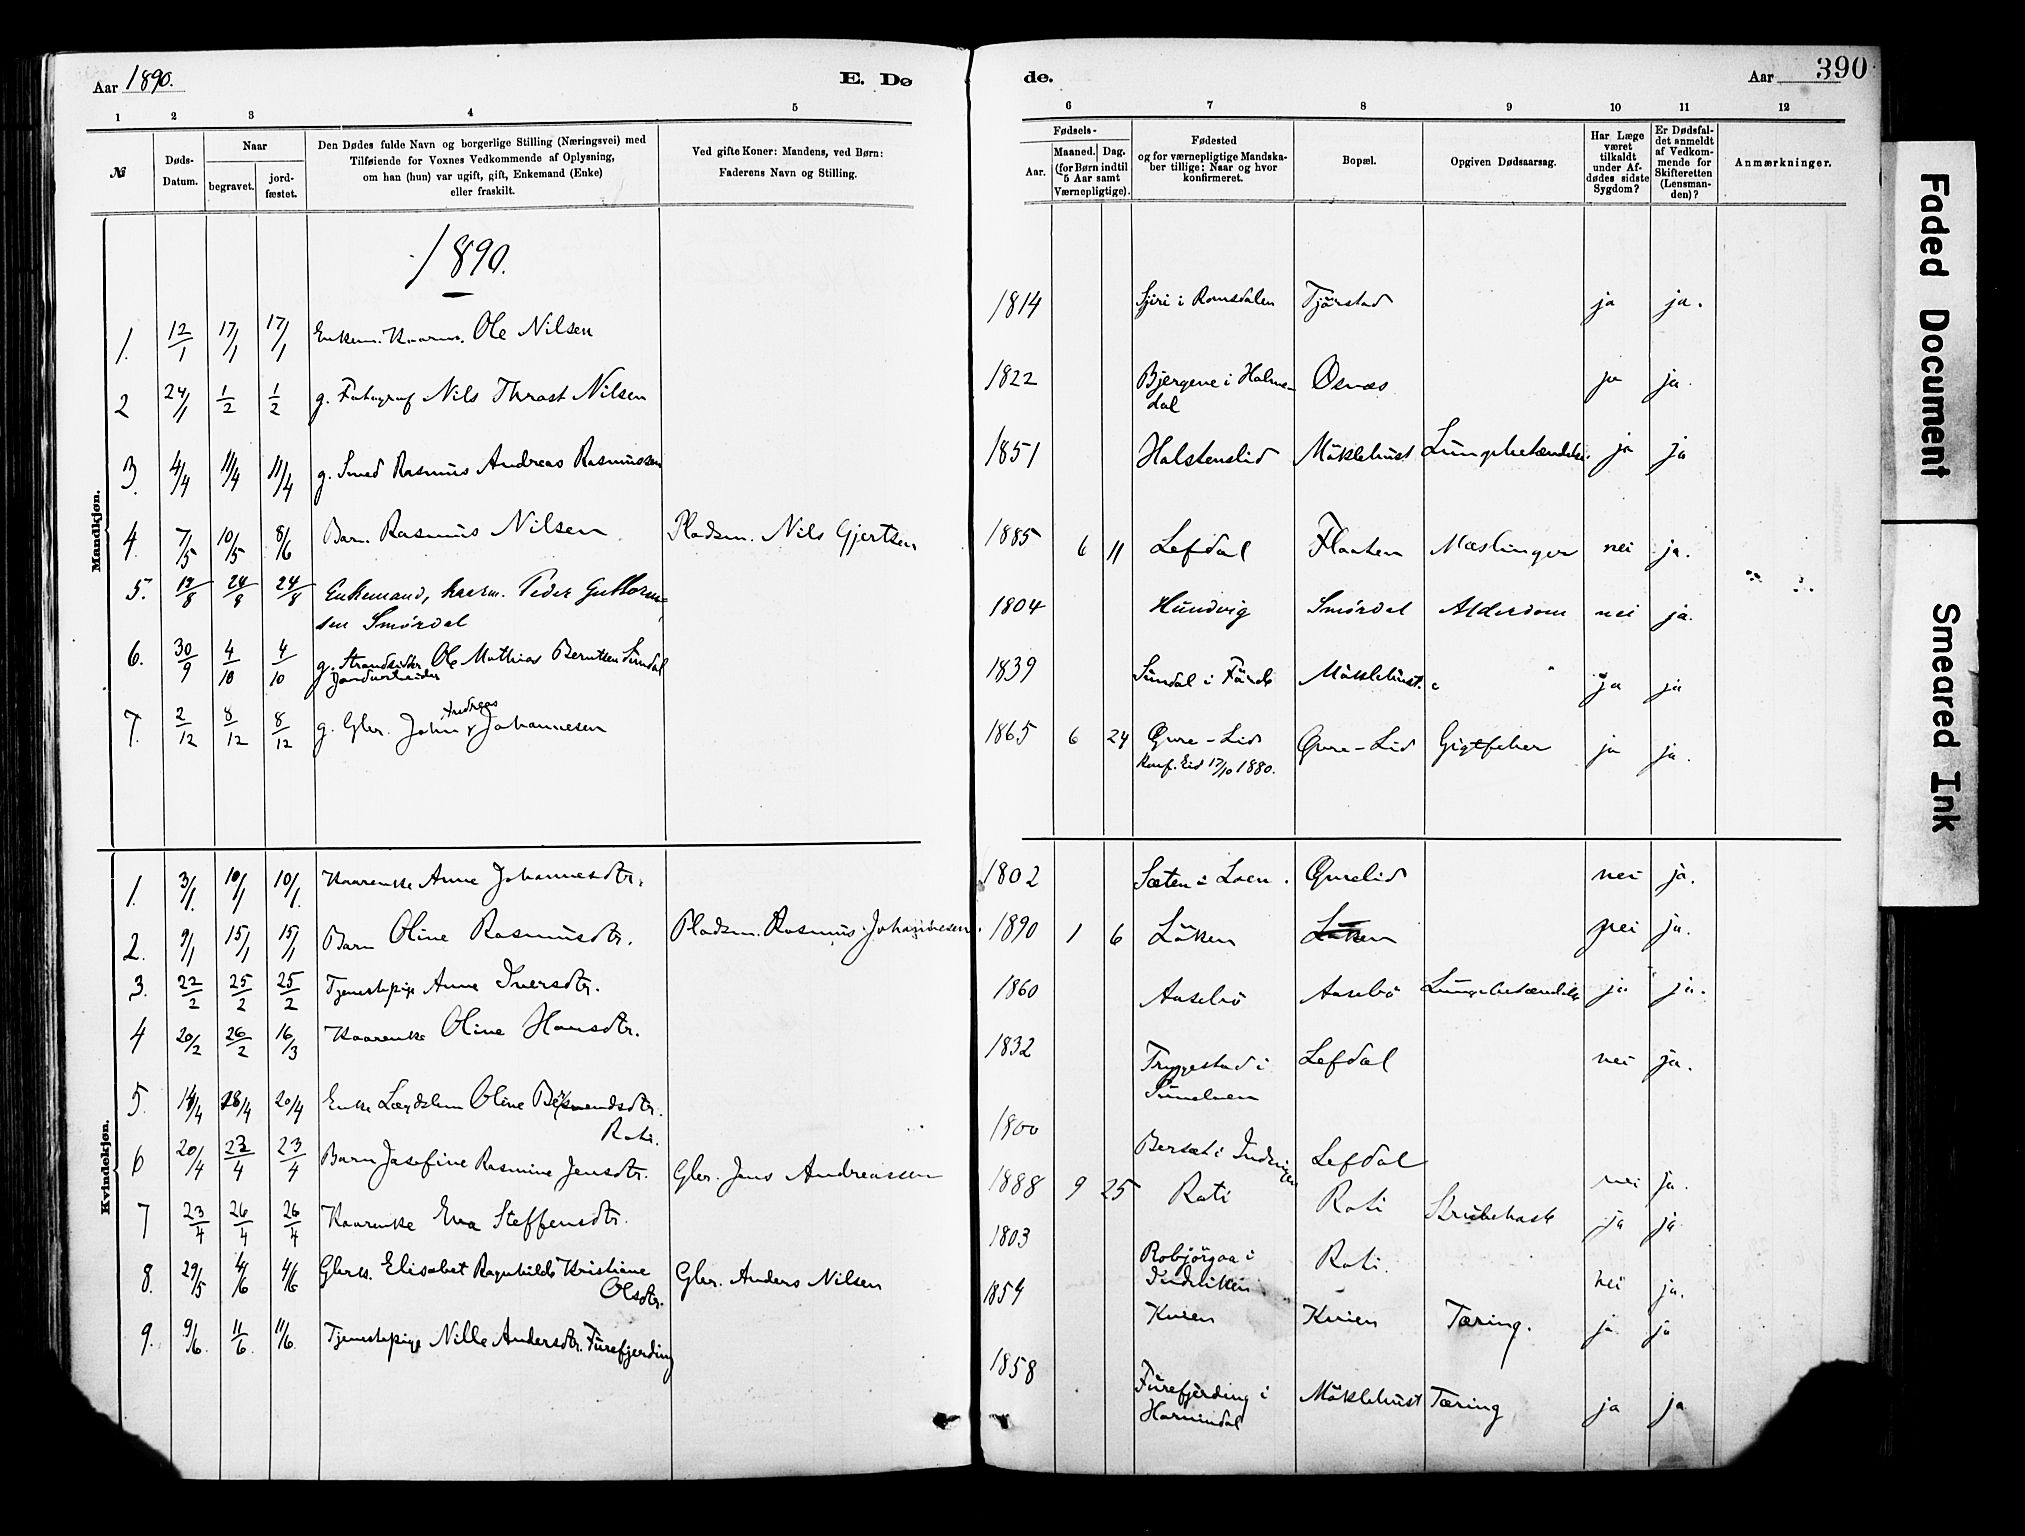 Aar 1890.
E. Dø
de.
Aar
390
1 2 3 4 5
6 7 8 9 10 11 12
№
Døds-
Datum.
Naar
begravet.
jord-
fæstet.
Den Dødes fulde Navn og borgerlige Stilling (Næringsvei) med
Tilføiende for Voxnes Vedkommende af Oplysning,
om han (hun) var ugift, gift, Enkemand (Enke)
eller fraskilt.
Ved gifte Koner: Mandens, ved Børn:
Faderens Navn og Stilling.
Fødsels-
Aar.
Maaned. Dag.
(for Børn indtil
5 Aar samt
Værnepligtige).
Fødested
og for værnepligtige Mandska-
ber tillige: Naar og hvor
konfirmeret.
Bopæl.
Opgiven Dødsaarsag.
Har Læge
været
tilkaldt
under Af-
dødes sidste
Sygdom?
Er Dødsfal-
det anmeldt
af Vedkom-
mende for
Skifteretten
(Lensman-
den)?
Anmærkninger.
1890.
Mandkjøn.
1. 12/1 17/1 17/1 Enkem. Kaarm. Ole Nilsen 1814 i Romsdalen Tjørstad ja ja.
2 24/1 1/2 1/2 g. Fotograf Nils Throst Nilsen 1822 Bjergene i Holme- Osnæs ja ja.
dal
3. 4/4 11/4 11/4 g. Smed Rasmus Andreas Rasmussen 1851 Holstenslid Möklebust Lungebetændelse. ja ja
4. 7/5 10/5 8/6 Barn Rasmus Nilsen Pladsm. Nils Gjertsen 1885 6 11 Lefdal Flaaten Mæslinger nei ja.
5. 19/8 24/8 24/8 Enkemand, kaarm. Peder Guttorm- 1804 Hundvig Smördal Alderdom nei ja.
sen Smördal
6. 30/9 4/10 4/10 g. Strandsidder Ole Mathias Berntsen Sundal 1839 Sundal i Förde Möklebust. ja ja
Jordarbeider
7. 2/12 8/12 8/12 g. Gbr. John Andreas Johannesen 1865 6 24 Øvre-Lid Øvre-Lid Gigtfeber ja ja.
Konf. Eid 17/10 1880.
Kvindekjøn.
1. 3/1. 10/1 10/1. Kaarenke Anne Johannesdtr. 1802 Sæten i Loen. Øvrelid nei ja.
2. 9/1 15/1 15/1 Barn Oline Rasmusdtr. Pladsm. Rasmus Johannesen. 1890 1 6 Löken Löken nei ja.
3. 22/2 25/2 25/2 Tjenestepige Anne Iversdtr. 1860 Aasebö Aasebö Lungebetændelse ja ja.
4 20/2 26/2 16/3 Kaarenke Oline Hansdtr. 1832 Tryggestad i Lefdal nei ja.
Sunelven
5. 14/4 18/4 20/4 Enke Lægdslem Oline 1800 Bersæt i Lefdal nei ja.
Roti.
6 20/4 23/4 23/4 Barn Josefine Rasmine Jensdtr. Gbr. Jens Andreassen 1888 9 25 Roti Roti Strubehoste ja ja
7 23/4 26/4 26/4 Kaarenke Eva Steffensdtr. 1803 Robjörgaa i Roti. nei ja.
8. 29/5 4/6 4/6 Gbrk. Elisabet Ragnhilde Kristiane Gbr. Anders Nilsen 1859 Kvien Kvien Tæring. ja ja
Olsdtr.
9. 9/6. 11/6 11/6. Tjenestepige Nille Andersdtr. Furefjerding 1858 Furefjerding i Möklebust Tæring ja ja
Hornindal
Faded Document
Smeared Ink